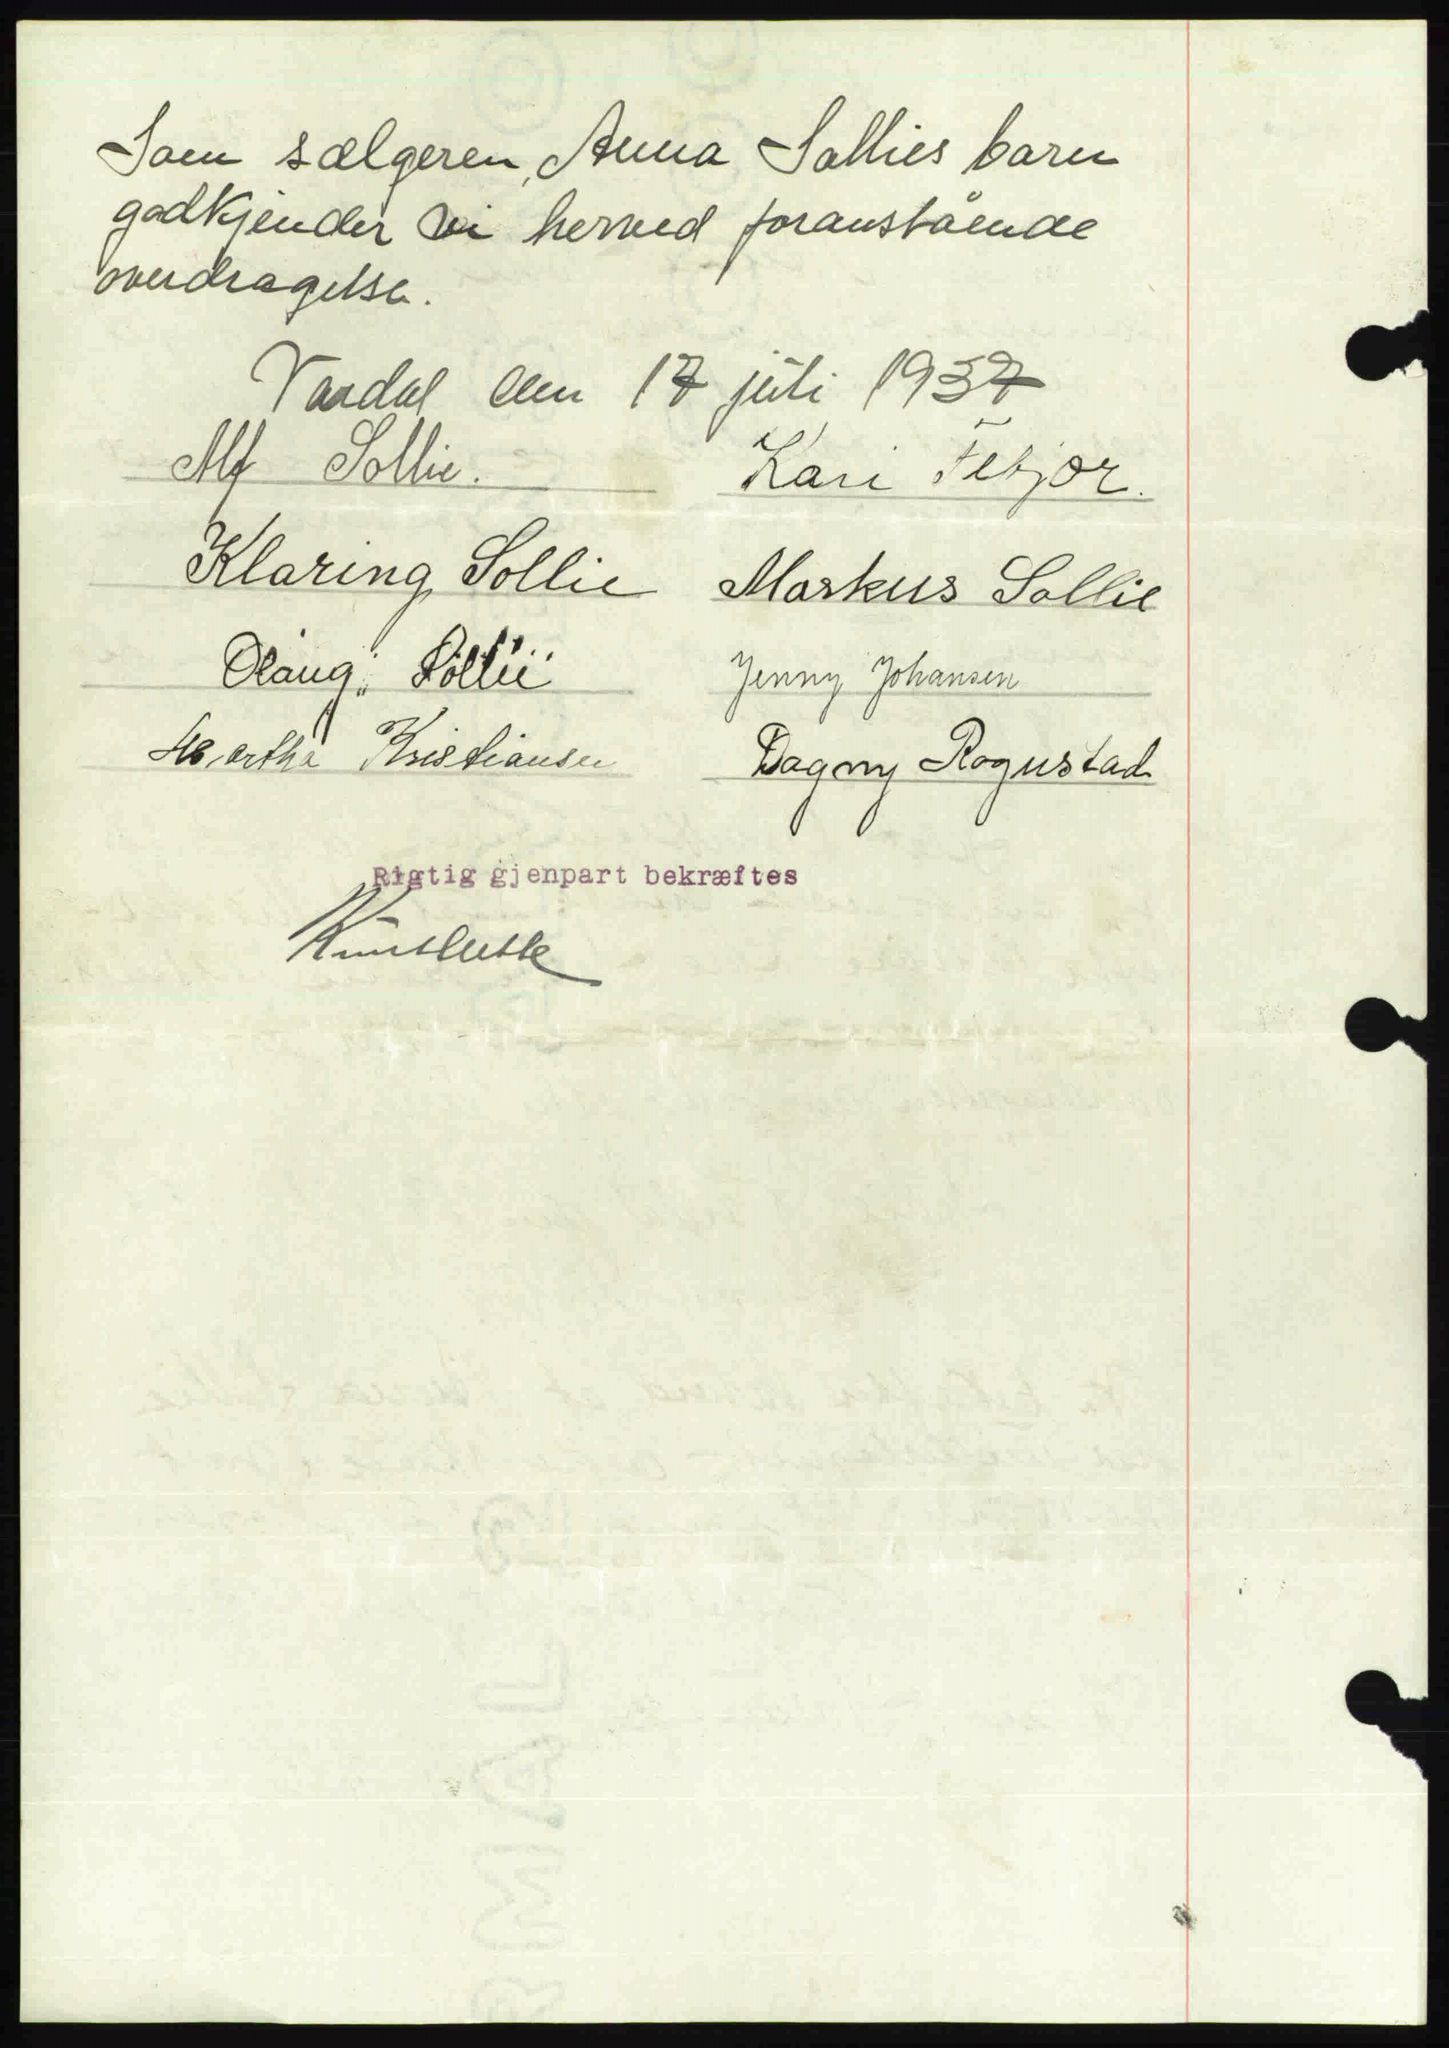 Som sælgeren, Anna Sollies barn
godkjender vi herved foranstående
overdragelse.
Vardal den 17 juli 1937
Alf Sollie. Kari Febjor.
Klaring Sollie Markus Sollie
Olaug Sollie Jenny Johansen
Martha Kristiansen Dagny Rognstad
Rigtig gjenpart bekræftes